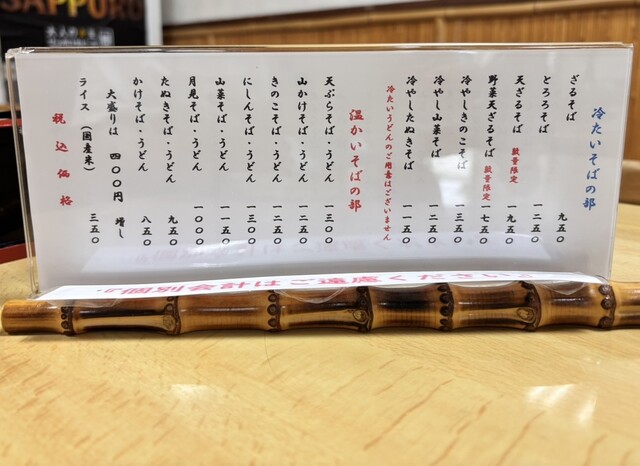 冷たいそばの部
ざるそば 九五〇
とろろそば 一二五〇
天ざるそば 数量限定 一九五〇
野菜天ざるそば 数量限定 一七五〇
冷やしきのこそば 一三五〇
冷やし山菜そば 一二五〇
冷やしたぬきそば 一一五〇
冷たいうどんのご用意はございません
温かいそばの部
天ぷらそば・うどん 一三〇〇
山かけそば・うどん 一二五〇
きのこそば・うどん 一二五〇
にしんそば・うどん 一三〇〇
山菜そば・うどん 一一五〇
月見そば・うどん 一〇〇〇
たぬきそば・うどん 九五〇
かけそば・うどん 八五〇
大盛りは 四〇〇円 増し
ライス（国産米） 三五〇
税込価格
個別会計はご遠慮ください
SAPPORO